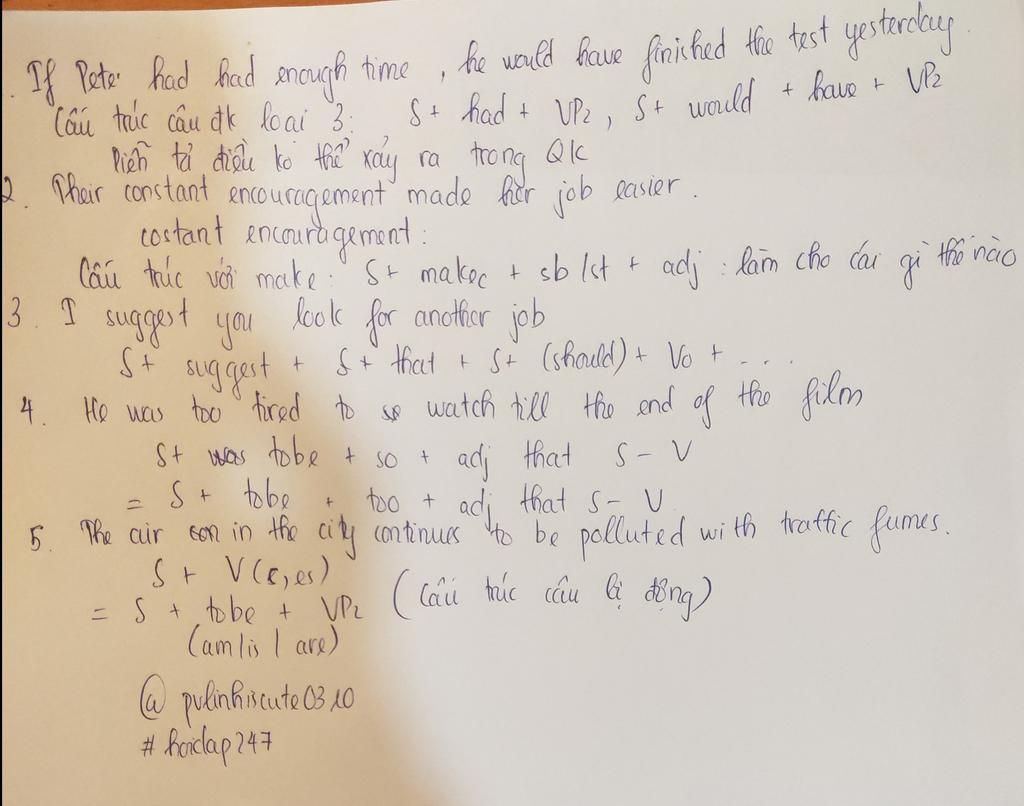 . If Pete had had enough time, he would have finished the test yesterday.
Cấu trúc câu đk loại 3: S + had + VP2, S + would + have + VP2
Diễn tả điều ko thể xảy ra trong QK
2. Their constant encouragement made her job easier.
costant encouragement:
Cấu trúc với make: S + make + sb/st + adj: làm cho cái gì thế nào
3. I suggest you look for another job
S + suggest + S + that + S + (should) + Vo + ....
4. He was too tired to watch till the end of the film
S + was tobe + so + adj that S - V
= S + tobe + too + adj that S - V
5. The air in the city continues to be polluted with traffic fumes.
S + V(s,es)
= S + tobe + VP2 (Cấu trúc câu bị động)
(am/is/are)
@ pvlinhiscute0310
# hoidap247